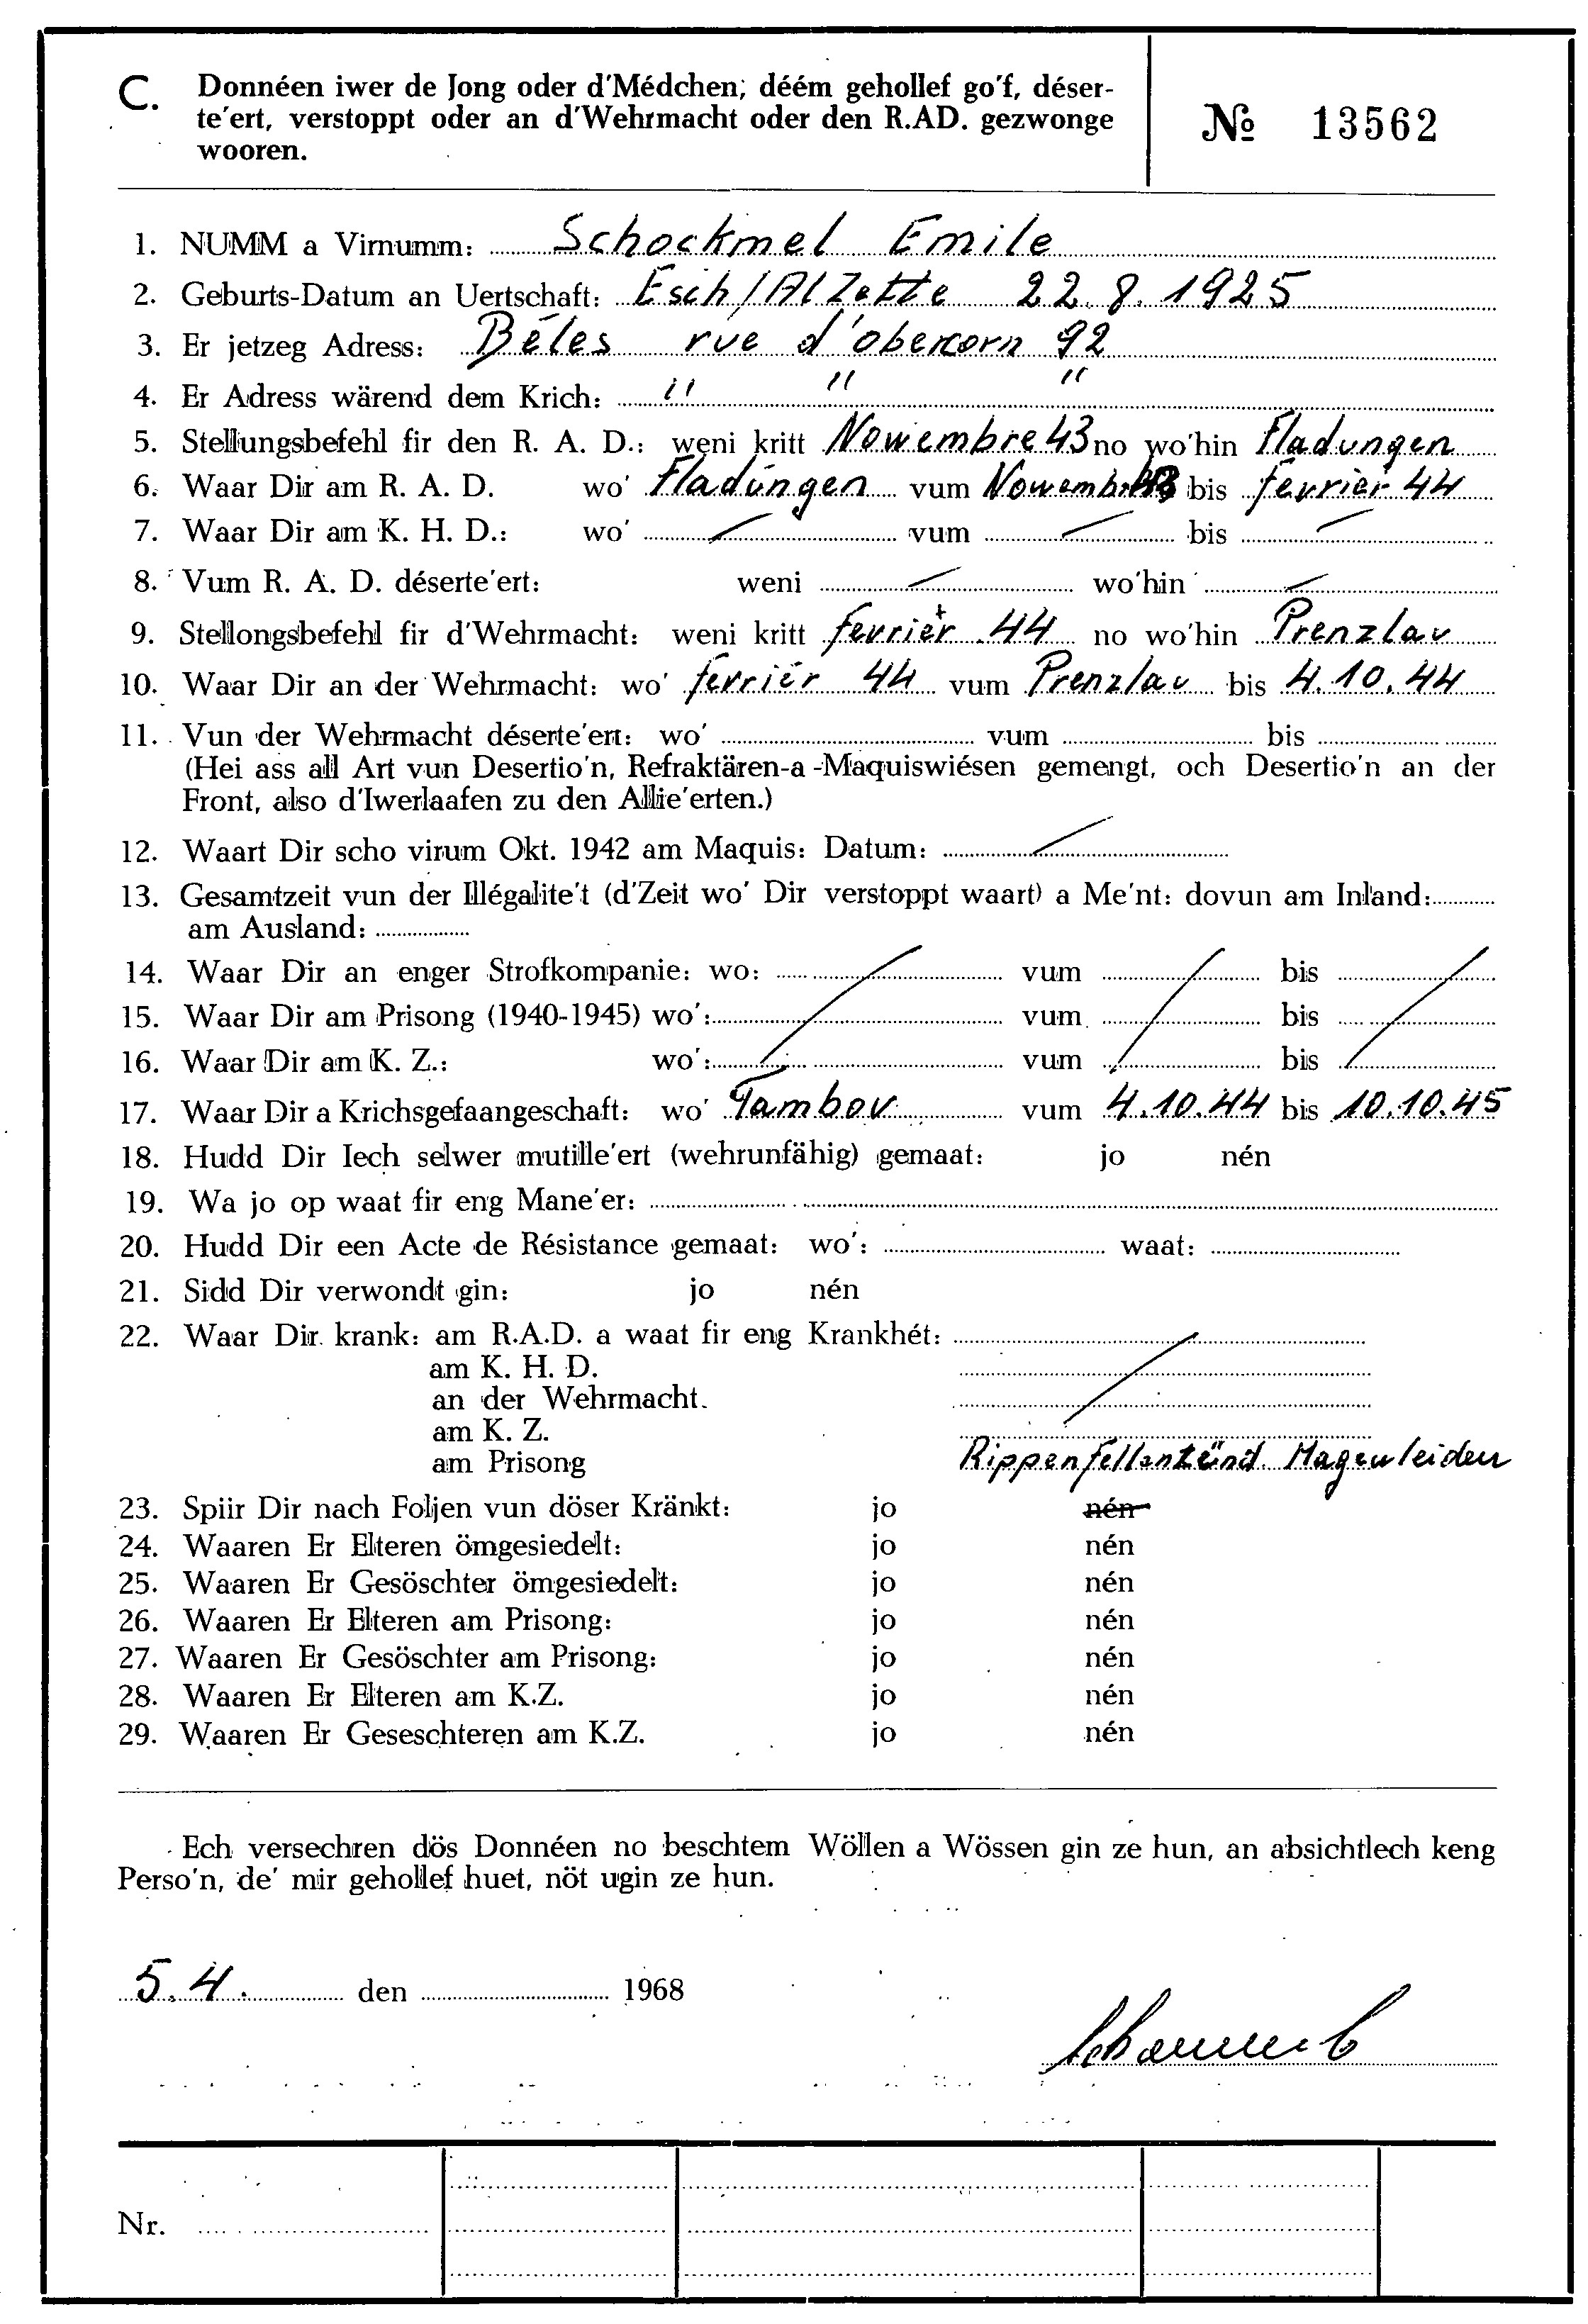 C. Donnéen iwer de Jong oder d'Médchen; déém gehollef go'f, déser-
te'ert, verstoppt oder an d'Wehrmacht oder den R.AD. gezwonge
wooren.
№ 13562
1. NUMM a Virnumm: Schockmel Emile
2. Geburts-Datum an Uertschaft: Esch/Alzette 22.8.1925
3. Er jetzeg Adress: Béles rue d'obercorn 92
4. Er Adress wärend dem Krich: " " "
5. Stellungsbefehl fir den R. A. D.: weni kritt Nowembre 43 no wo'hin Fladungen
6. Waar Dir am R. A. D. wo' Fladúngen vum Nowembre 43 bis fevrier 44
7. Waar Dir am K. H. D.: wo' / vum / bis /
8. Vum R. A. D. déserte'ert: weni / wo'hin /
9. Stellongsbefehl fir d'Wehrmacht: weni kritt fevrier 44 no wo'hin Prenzlau
10. Waar Dir an der Wehrmacht: wo' fevrier 44 vum Prenzlau bis 4.10.44
11. Vun der Wehrmacht déserte'ert: wo' vum bis
(Hei ass all Art vun Desertio'n, Refraktären-a-Maquiswiésen gemengt, och Desertio'n an der
Front, also d'Iwerlaafen zu den Allie'erten.)
12. Waart Dir scho virum Okt. 1942 am Maquis: Datum: /
13. Gesamtzeit vun der Illégalite't (d'Zeit wo' Dir verstoppt waart) a Me'nt: dovun am Inland:
am Ausland:
14. Waar Dir an enger Strofkompanie: wo: vum bis
15. Waar Dir am Prisong (1940-1945) wo': vum bis
16. Waar Dir am K. Z.: wo': vum bis
17. Waar Dir a Krichsgefaangeschaft: wo' Tambov vum 4.10.44 bis 10.10.45
18. Hudd Dir Iech selwer mutille'ert (wehrunfähig) gemaat: jo nén
19. Wa jo op waat fir eng Mane'er:
20. Hudd Dir een Acte de Résistance gemaat: wo': waat:
21. Sidd Dir verwondt gin: jo nén
22. Waar Dir krank: am R.A.D. a waat fir eng Krankhét:
am K. H. D.
an der Wehrmacht.
am K. Z.
am Prisong Rippenfellentzünd. Magenleiden
23. Spiir Dir nach Foljen vun döser Kränkt: jo nén
24. Waaren Er Elteren ömgesiedelt: jo nén
25. Waaren Er Gesöschter ömgesiedelt: jo nén
26. Waaren Er Elteren am Prisong: jo nén
27. Waaren Er Gesöschter am Prisong: jo nén
28. Waaren Er Elteren am K.Z. jo nén
29. Waaren Er Geseschteren am K.Z. jo nén
Ech versechren dös Donnéen no beschtem Wöllen a Wössen gin ze hun, an absichtlech keng
Perso'n, de' mir gehollef huet, nöt ugin ze hun.
5.4. den 1968
Nr.